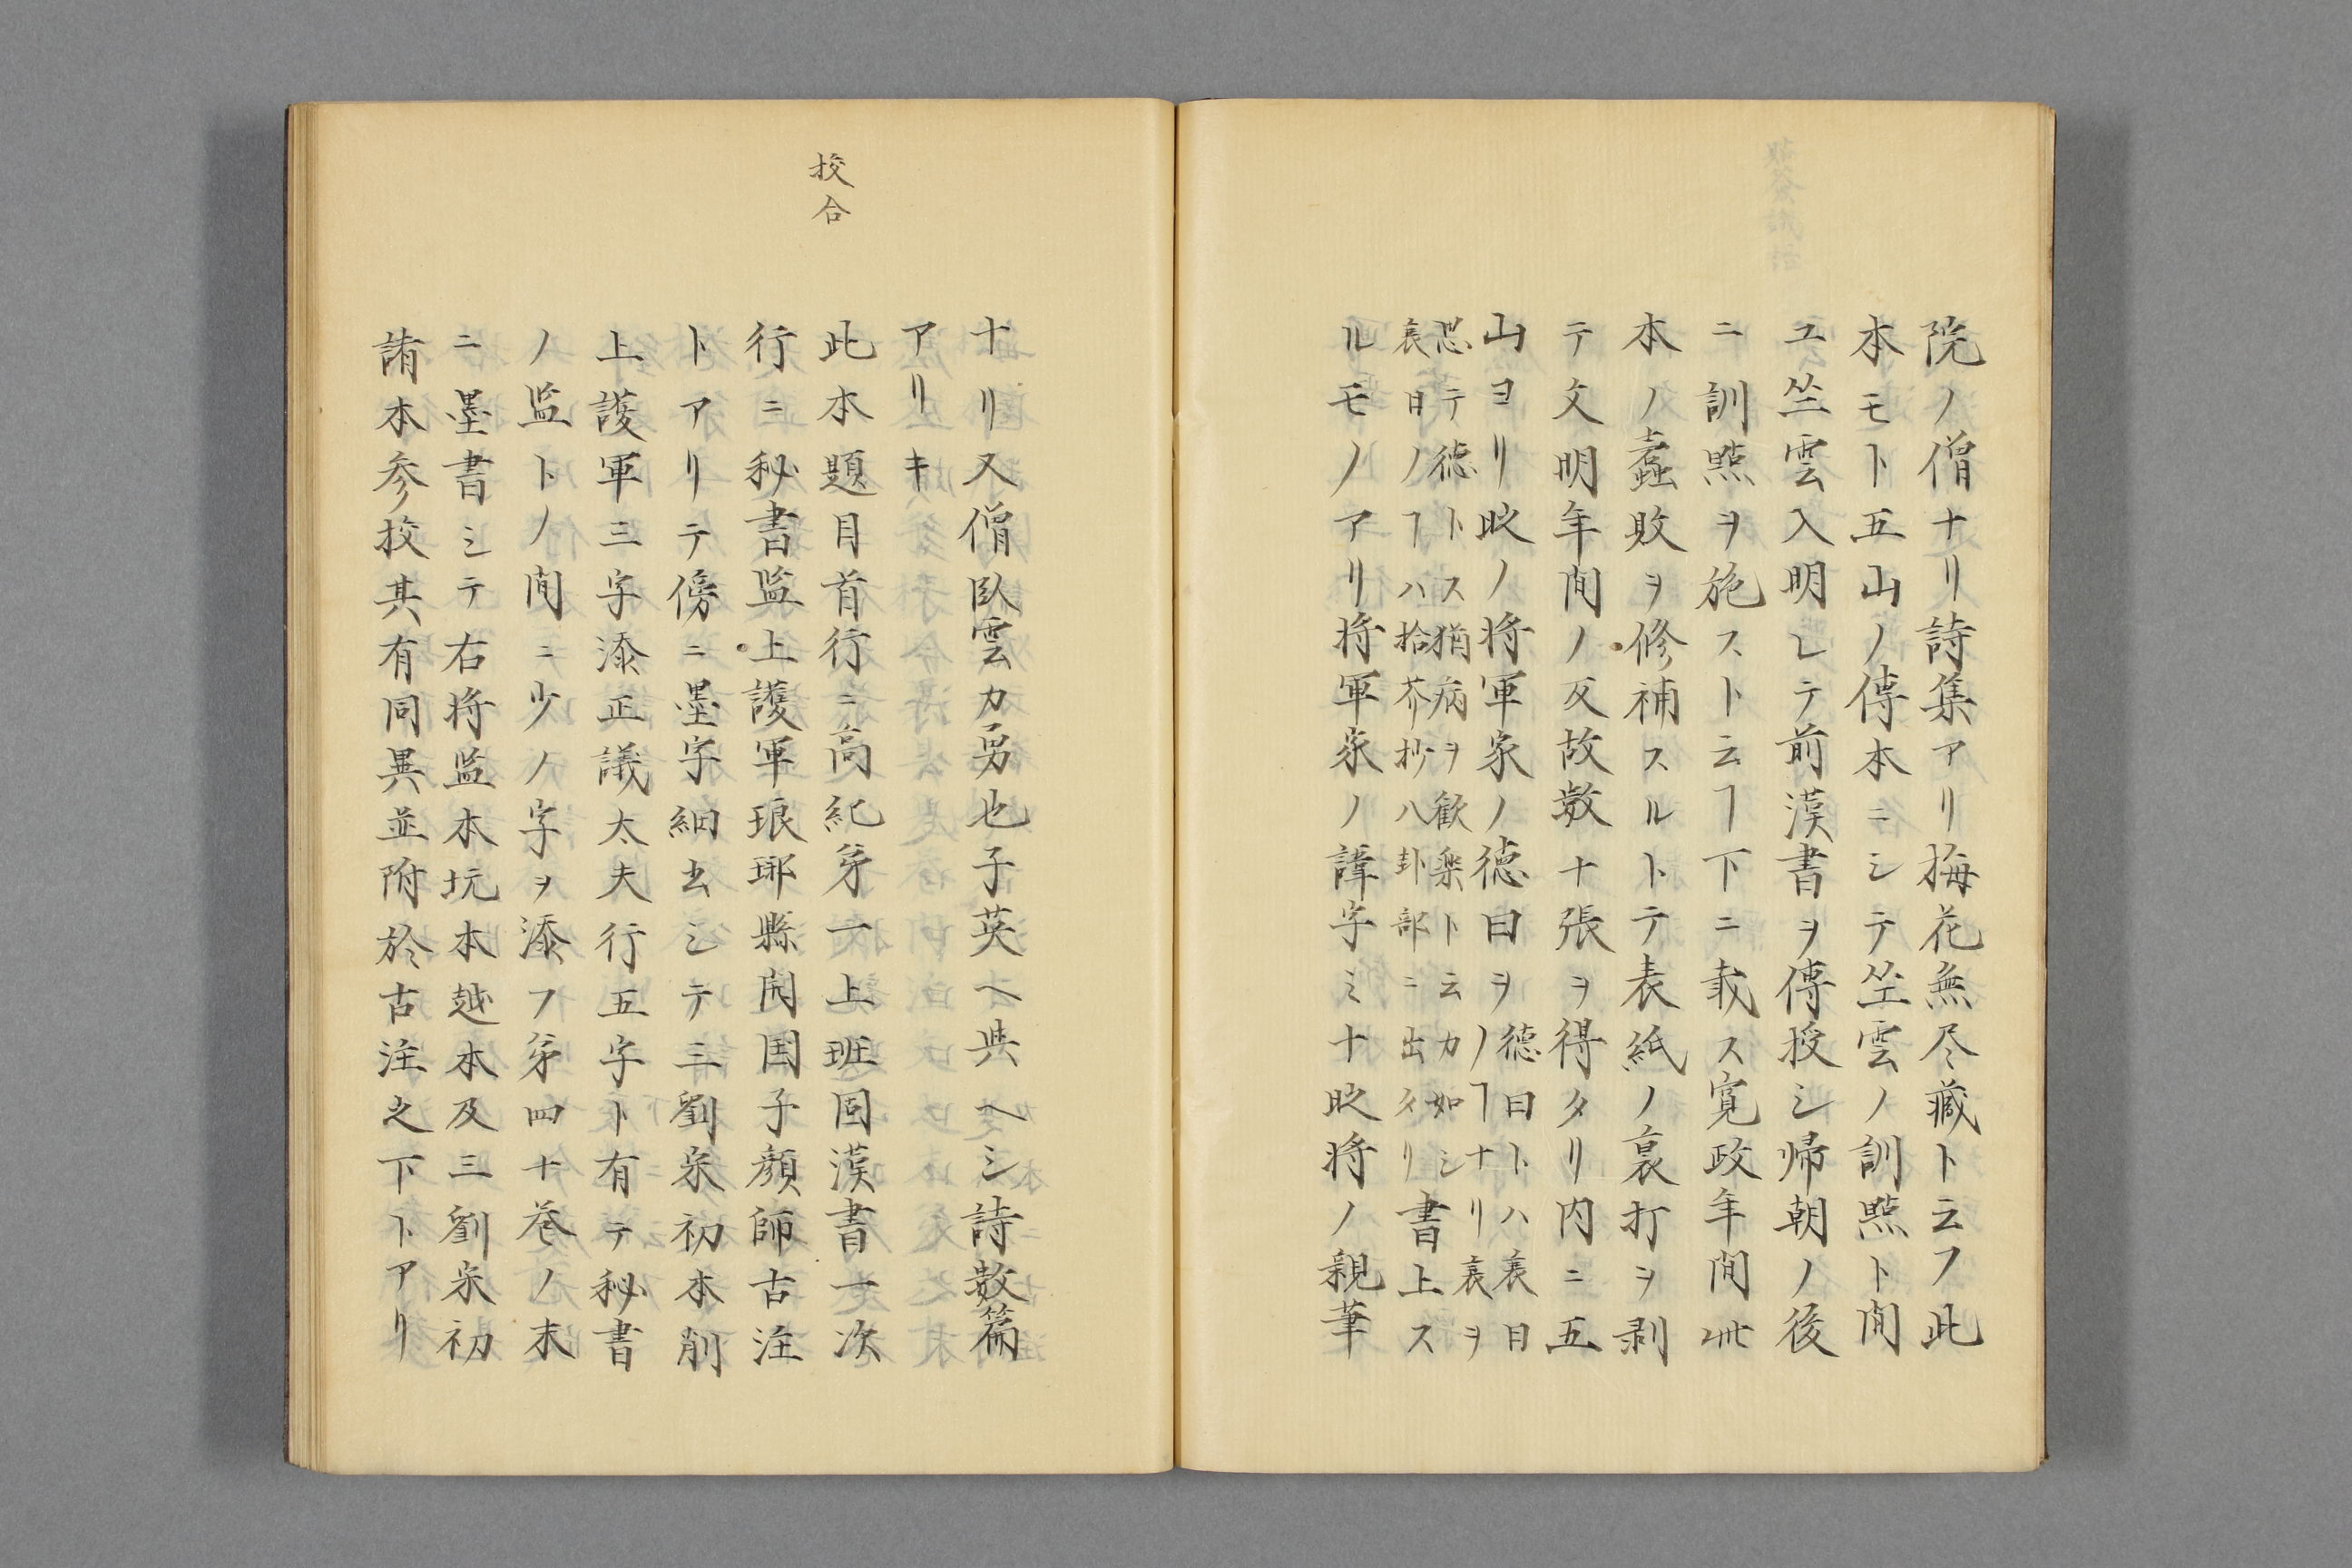 院ノ僧ナリ詩集アリ梅花無尽蔵ト云フ此
本モト五山ノ傳本ニシテ竺雲ノ訓㸃ト聞
ユ竺雲入明シテ前漢書ヲ傳授シ帰朝ノ後
ニ訓㸃ヲ施スト云ヿ下ニ載ス寛政年間此
本ノ蠧敗ヲ修補スルトテ表紙ノ裏打ヲ剥
テ文明年間ノ反故数十張ヲ得タリ内ニ五
山ヨリ時ノ将軍家ノ徳日ヲ徳日トハ衰日
ノヿナリ衰ヲ
忌テ徳トス猶病ヲ歓楽ト云カ如シ
衰日ノヿハ拾芥抄八卦部ニ出タリ書上ス
ルモノアリ将軍家ノ諱字ミナ時将ノ親筆
校合
ナリ又僧臥雲カ勇也子英ヘ與ヘシ詩数篇
アリキ
此本題目首行ニ高紀第一上班固漢書一次
行ニ秘書監上護軍琅琊縣開国子顔師古注
トアリテ傍ニ墨字細書シテ三劉宋初本削
上護軍三字添正議太夫行五字ト有テ秘書
ノ監トノ間ニ少ノ字ヲ添フ第四十巻ノ末
ニ墨書シテ右将監本坑本越本及三劉宋初
諸本参校其有同異並附於古注之下トアリ